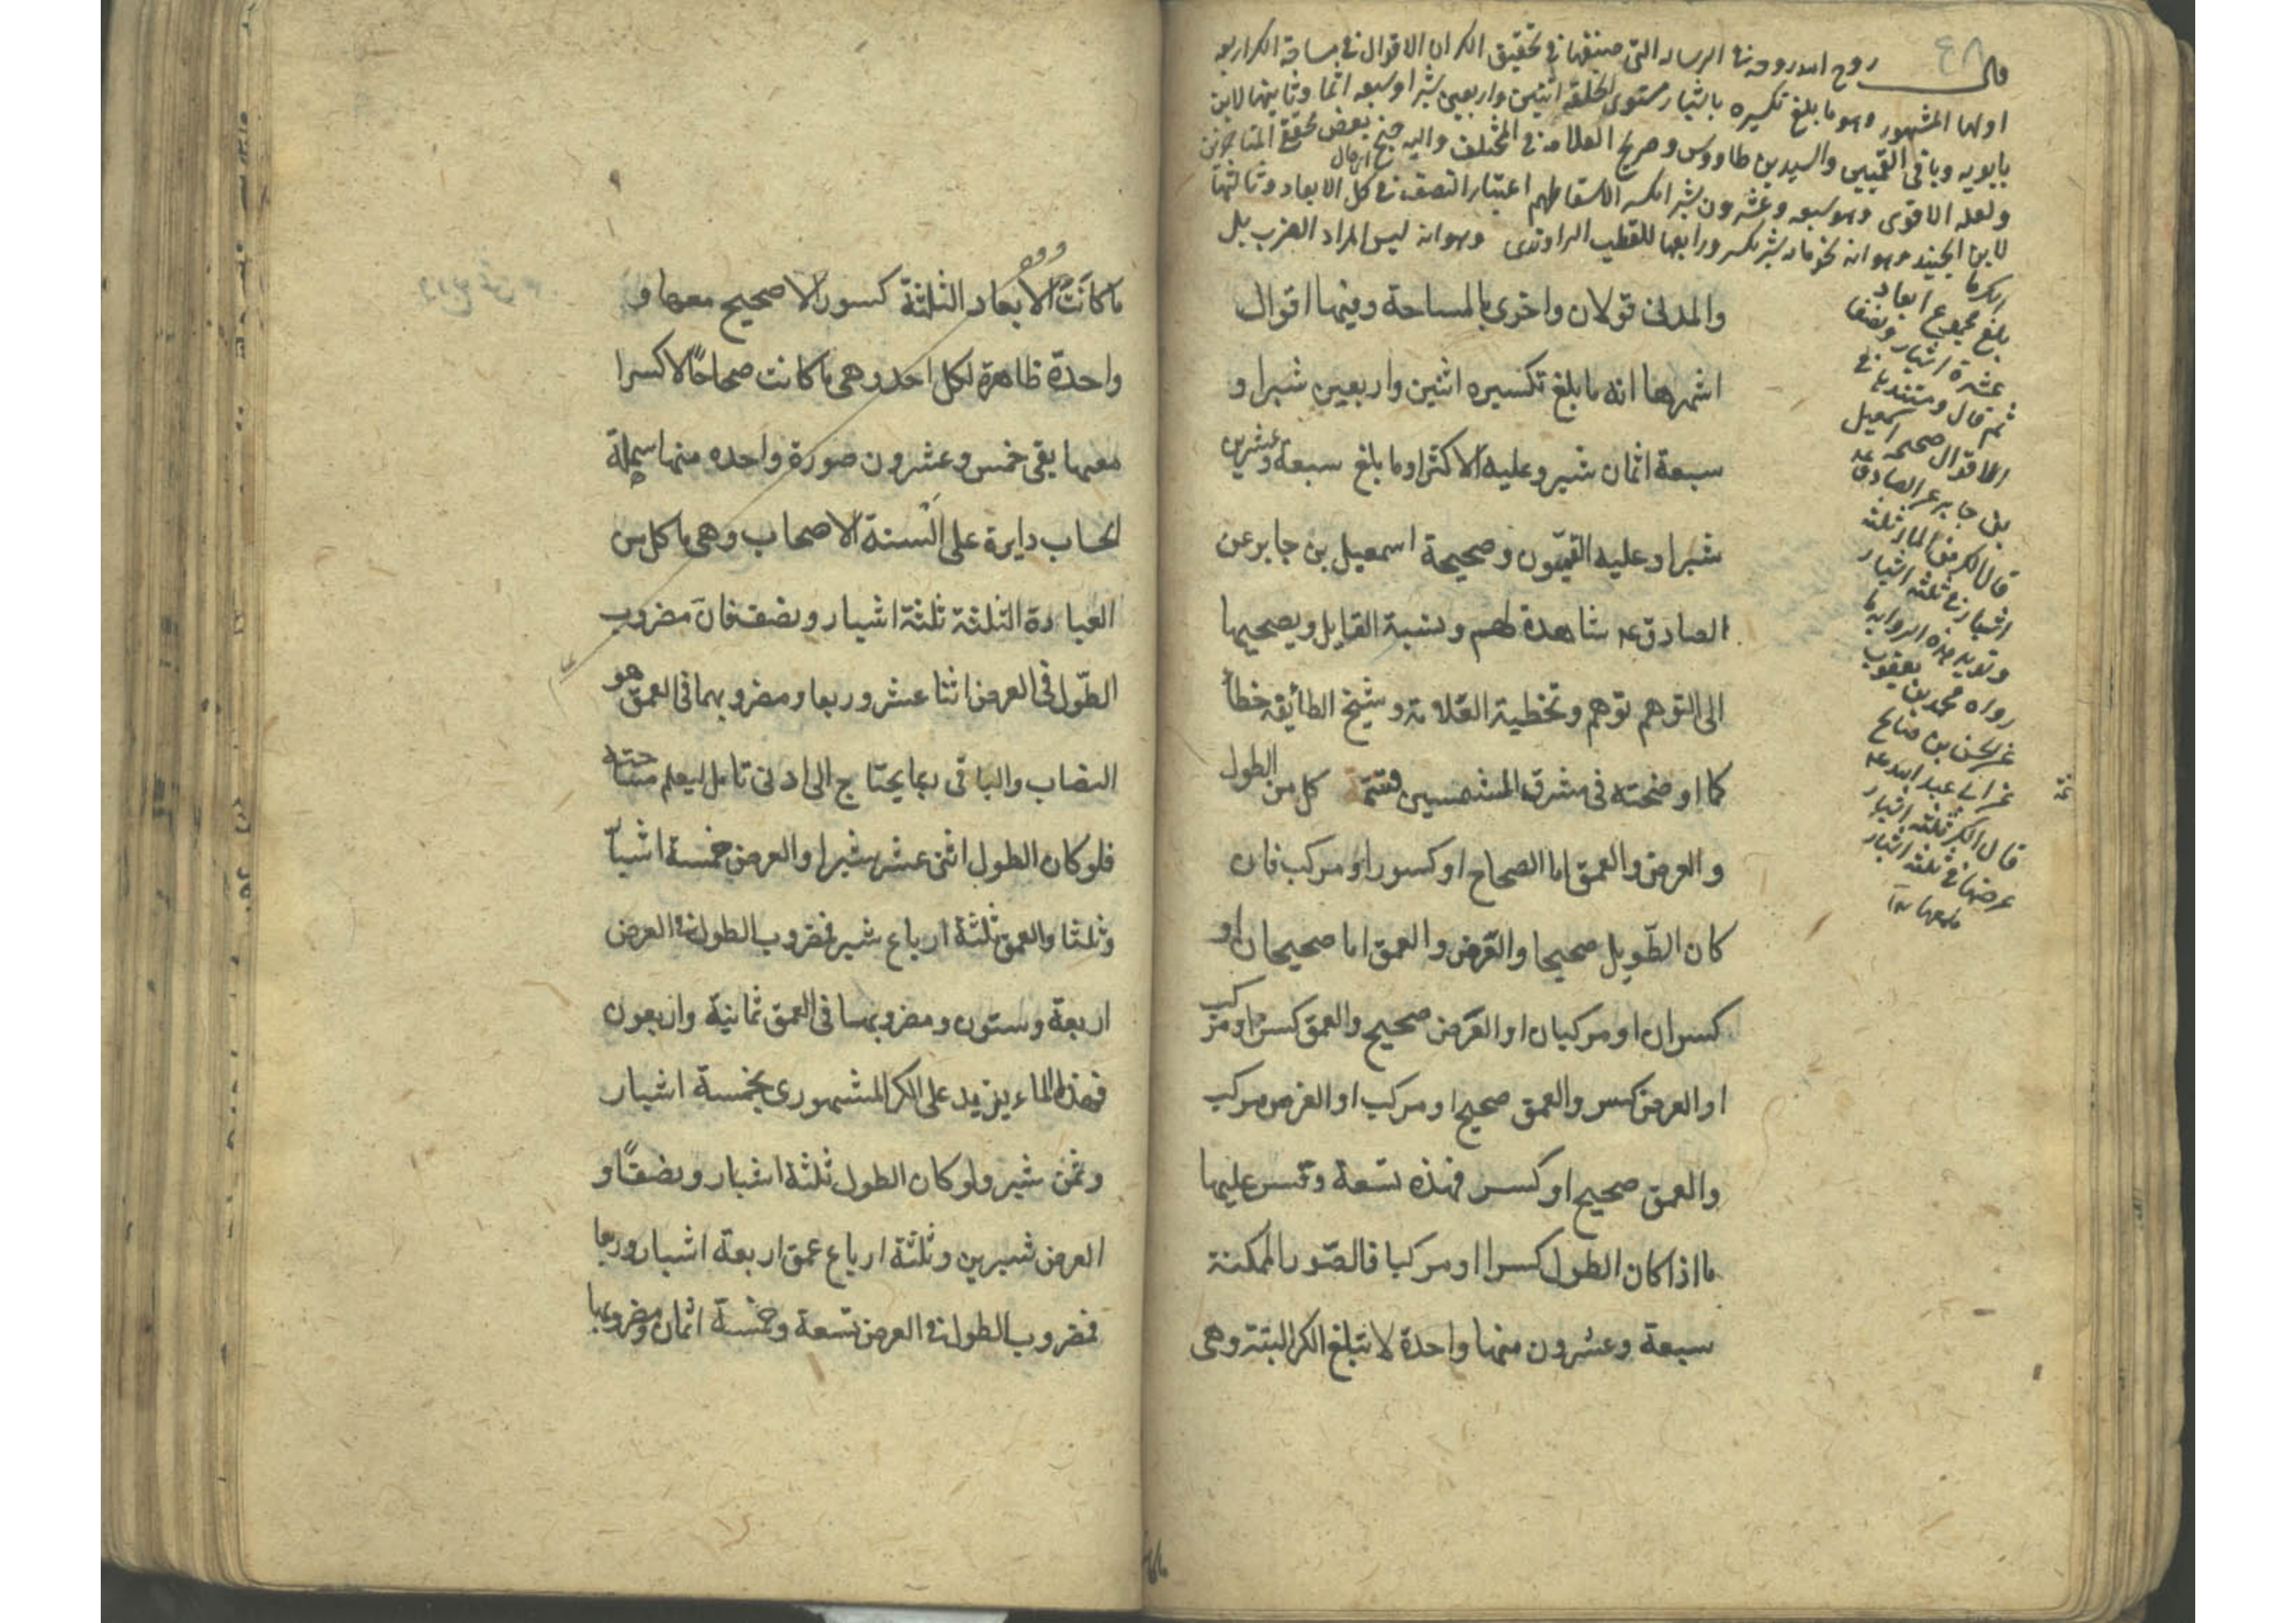 قال روح الله روحه في الرساله التي صنفها في تحقيق الكر ان الاقوال في مساحة الكر اربعه
اولها المشهور وهو ما بلغ تكسيره باشبار مستوى الخلقة اثنين واربعين شبرا وسبعه اثمان وثانيها لابن
بابويه وباقي القميين والسيد بن طاووس وصريح العلامه في المختلف واليه جنح بعض محققي المتاخرين
ولعله الاقوى وهو سبعه وعشرون شبرا مكسره لاسقاطهم اعتبار النصف في كل الابعاد وثالثها
لابن الجنيد وهو انه نحو مائه شبر مكسر ورابعها للقطب الراوندى وهو انه ليس المراد الضرب بل
الكر ما
بلغ مجموع ابعاده
عشرة اشبار ونصفا
ثم قال ومستند ثاني
الاقوال صحيحه اسمعيل
بن جابر عن الصادق عه
قال الكر من الماء ثلثه
اشبار في ثلثه اشبار
وتؤيد هذه الروايه ما
رواه محمد بن يعقوب
عن الحسن بن صالح
عن ابى عبد الله عه
قال الكر ثلثه اشبار
عرضها في ثلثه اشبار
والمدنى قولان واخرى بالمساحة وفيها اقوال
اشهرها انه ما بلغ تكسيره اثنين واربعين شبرا و
سبعة اثمان شبر وعليه الاكثر او ما بلغ سبعة وعشرين
شبرا وعليه القميّون وصحيحة اسمعيل بن جابر عن
الصادق عه شاهدة لهم ونسبة القايل بصحيها
الى التوهم توهم وتخطية العلامة وشيخ الطائفة خطأ
كما اوضحته في مشرق الشمسين تتمّة كل من الطول
والعرض والعمق اما الصحاح او كسور او مركب فان
كان الطّويل صحيحا والعَرض والعمق اما صحيحان او
كسران او مركبان او العَرض صحيح والعمق كسر او مركب
او العرض كسر والعمق صحيح او مركب او العرض مركب
والعمق صحيح او كسر فهذه تسعة وقس عليها
ما اذا كان الطول كسرا او مركبا فالصّور الممكنة
سبعة وعشرون منها واحدة لا تبلغ الكر البتة وهى
ما كانت الابعاد الثلثة كسورا لا صحيح معها و
واحدة ظاهرة لكل احد وهى ما كانت صحاحًا لا كسرا
معها بقى خمس وعشرون صورة واحده منها سهلة
الحساب دايرة على السنة الاصحاب وهى ما كل من
العبادة الثلثة ثلثة اشبار ونصف فانّ مضروب
الطّول في العرض اثنا عشر وربعا ومضروبهما في العمق هو
النصاب والباقى ربما يحتاج الى ادنى تامل ليعلم مساحته
فلو كان الطول اثنى عشر شبرا والعرض خمسة اشبار
وثلثا والعمق ثلثة ارباع شبر فمضروب الطول في العرض
اربعة وستون ومضروبهما في العمق ثمانية واربعون
فهذا الماء يزيد على الكر المشهورى بخمسة اشبار
وثمن شبر ولو كان الطول ثلثة اشبار ونصفًا و
العرض شبرين وثلثة ارباع عمق اربعة اشبار وربعا
فمضروب الطول في العرض تسعة وخمسة اثمان ومضروبها